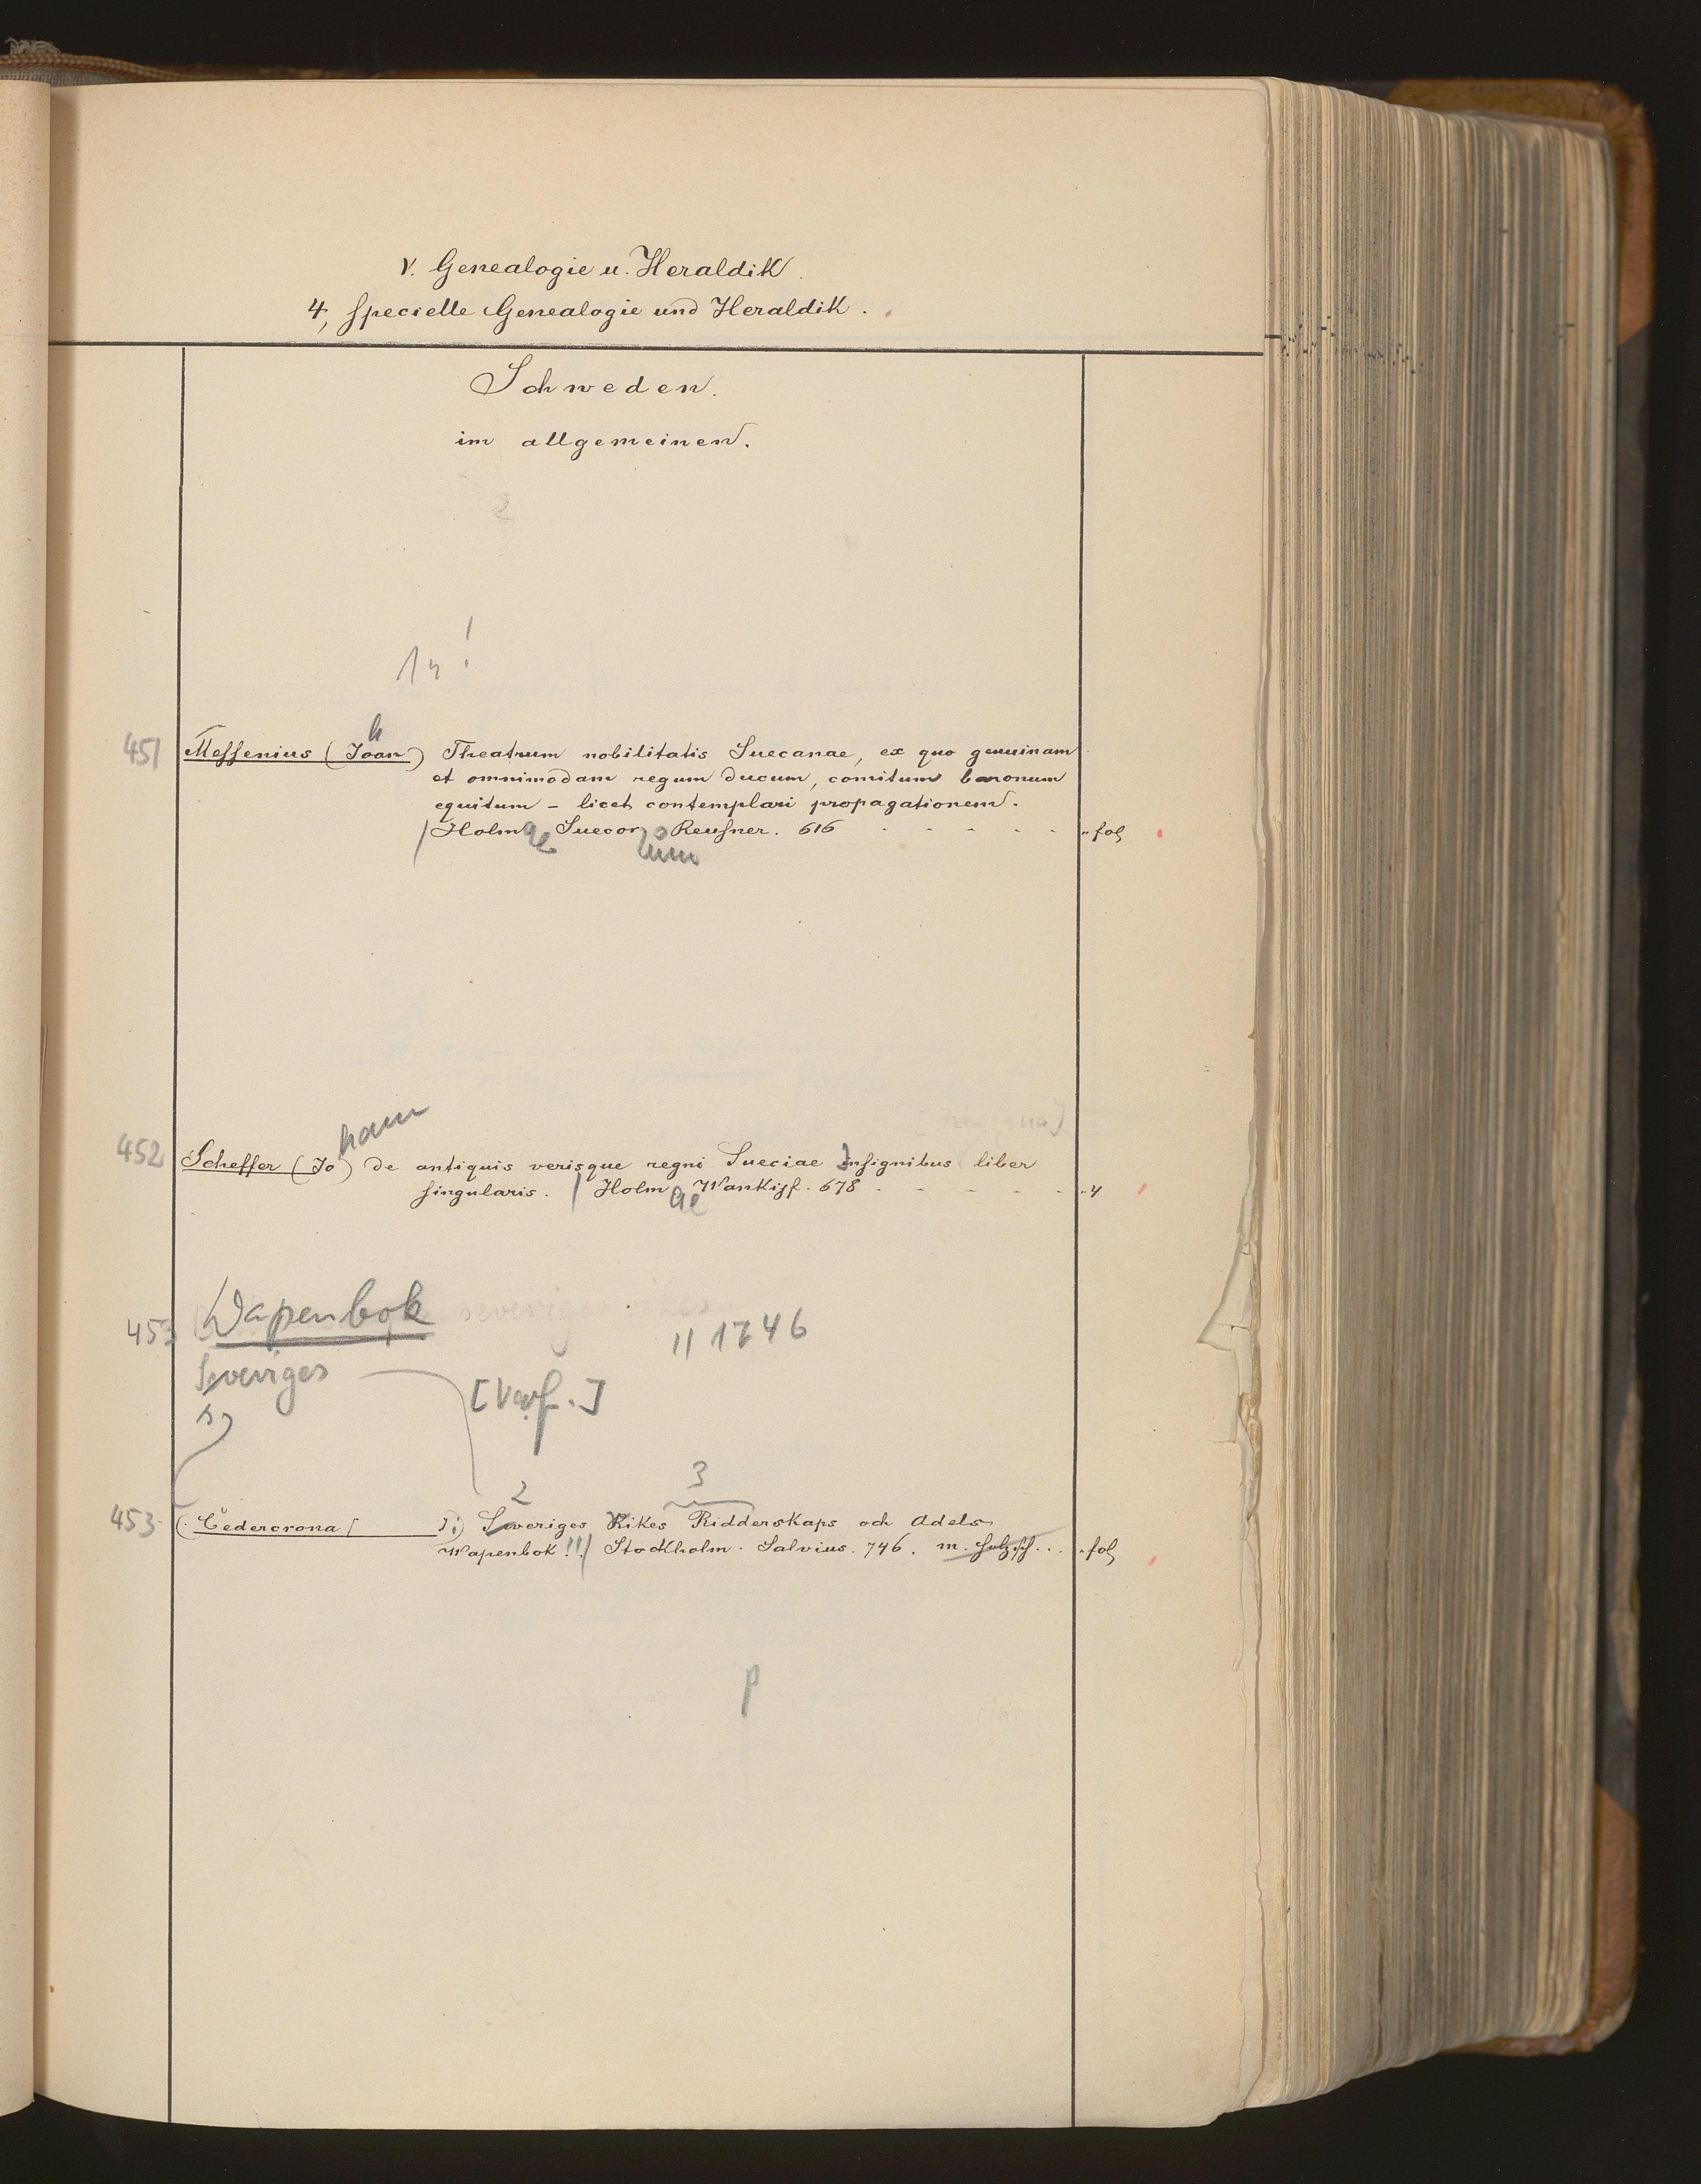 V. Genealogie u. Heraldik.
4, specielle Genealogie und Heraldik.
Schweden.
im allgemeinen.
!
h
451 Messenius (Joan) Theatrum nobilitatis Suecanae, ex quo genuinam
et omnimodam regum ducum, comitum baronum
equitum – licet contemplari propagationem.
/ Holmae Suecor Reusner. 616 . . . . . . " fol
hann
452 Scheffer (Jo ) de antiquis verisque regni Sueciae Insignibus liber
singularis. / Holmae Wankijf. 678 . . . . . . " 4
453 Wapenbok
// 1746
Sveriges
[Verf.]
1)
2 3
453 (Cedercrona [ ]:) Sweriges Rikes Ridderskaps och Adels
Wapenbok !!!/ Stockholm. Salvius. 746. . . . " fol
p